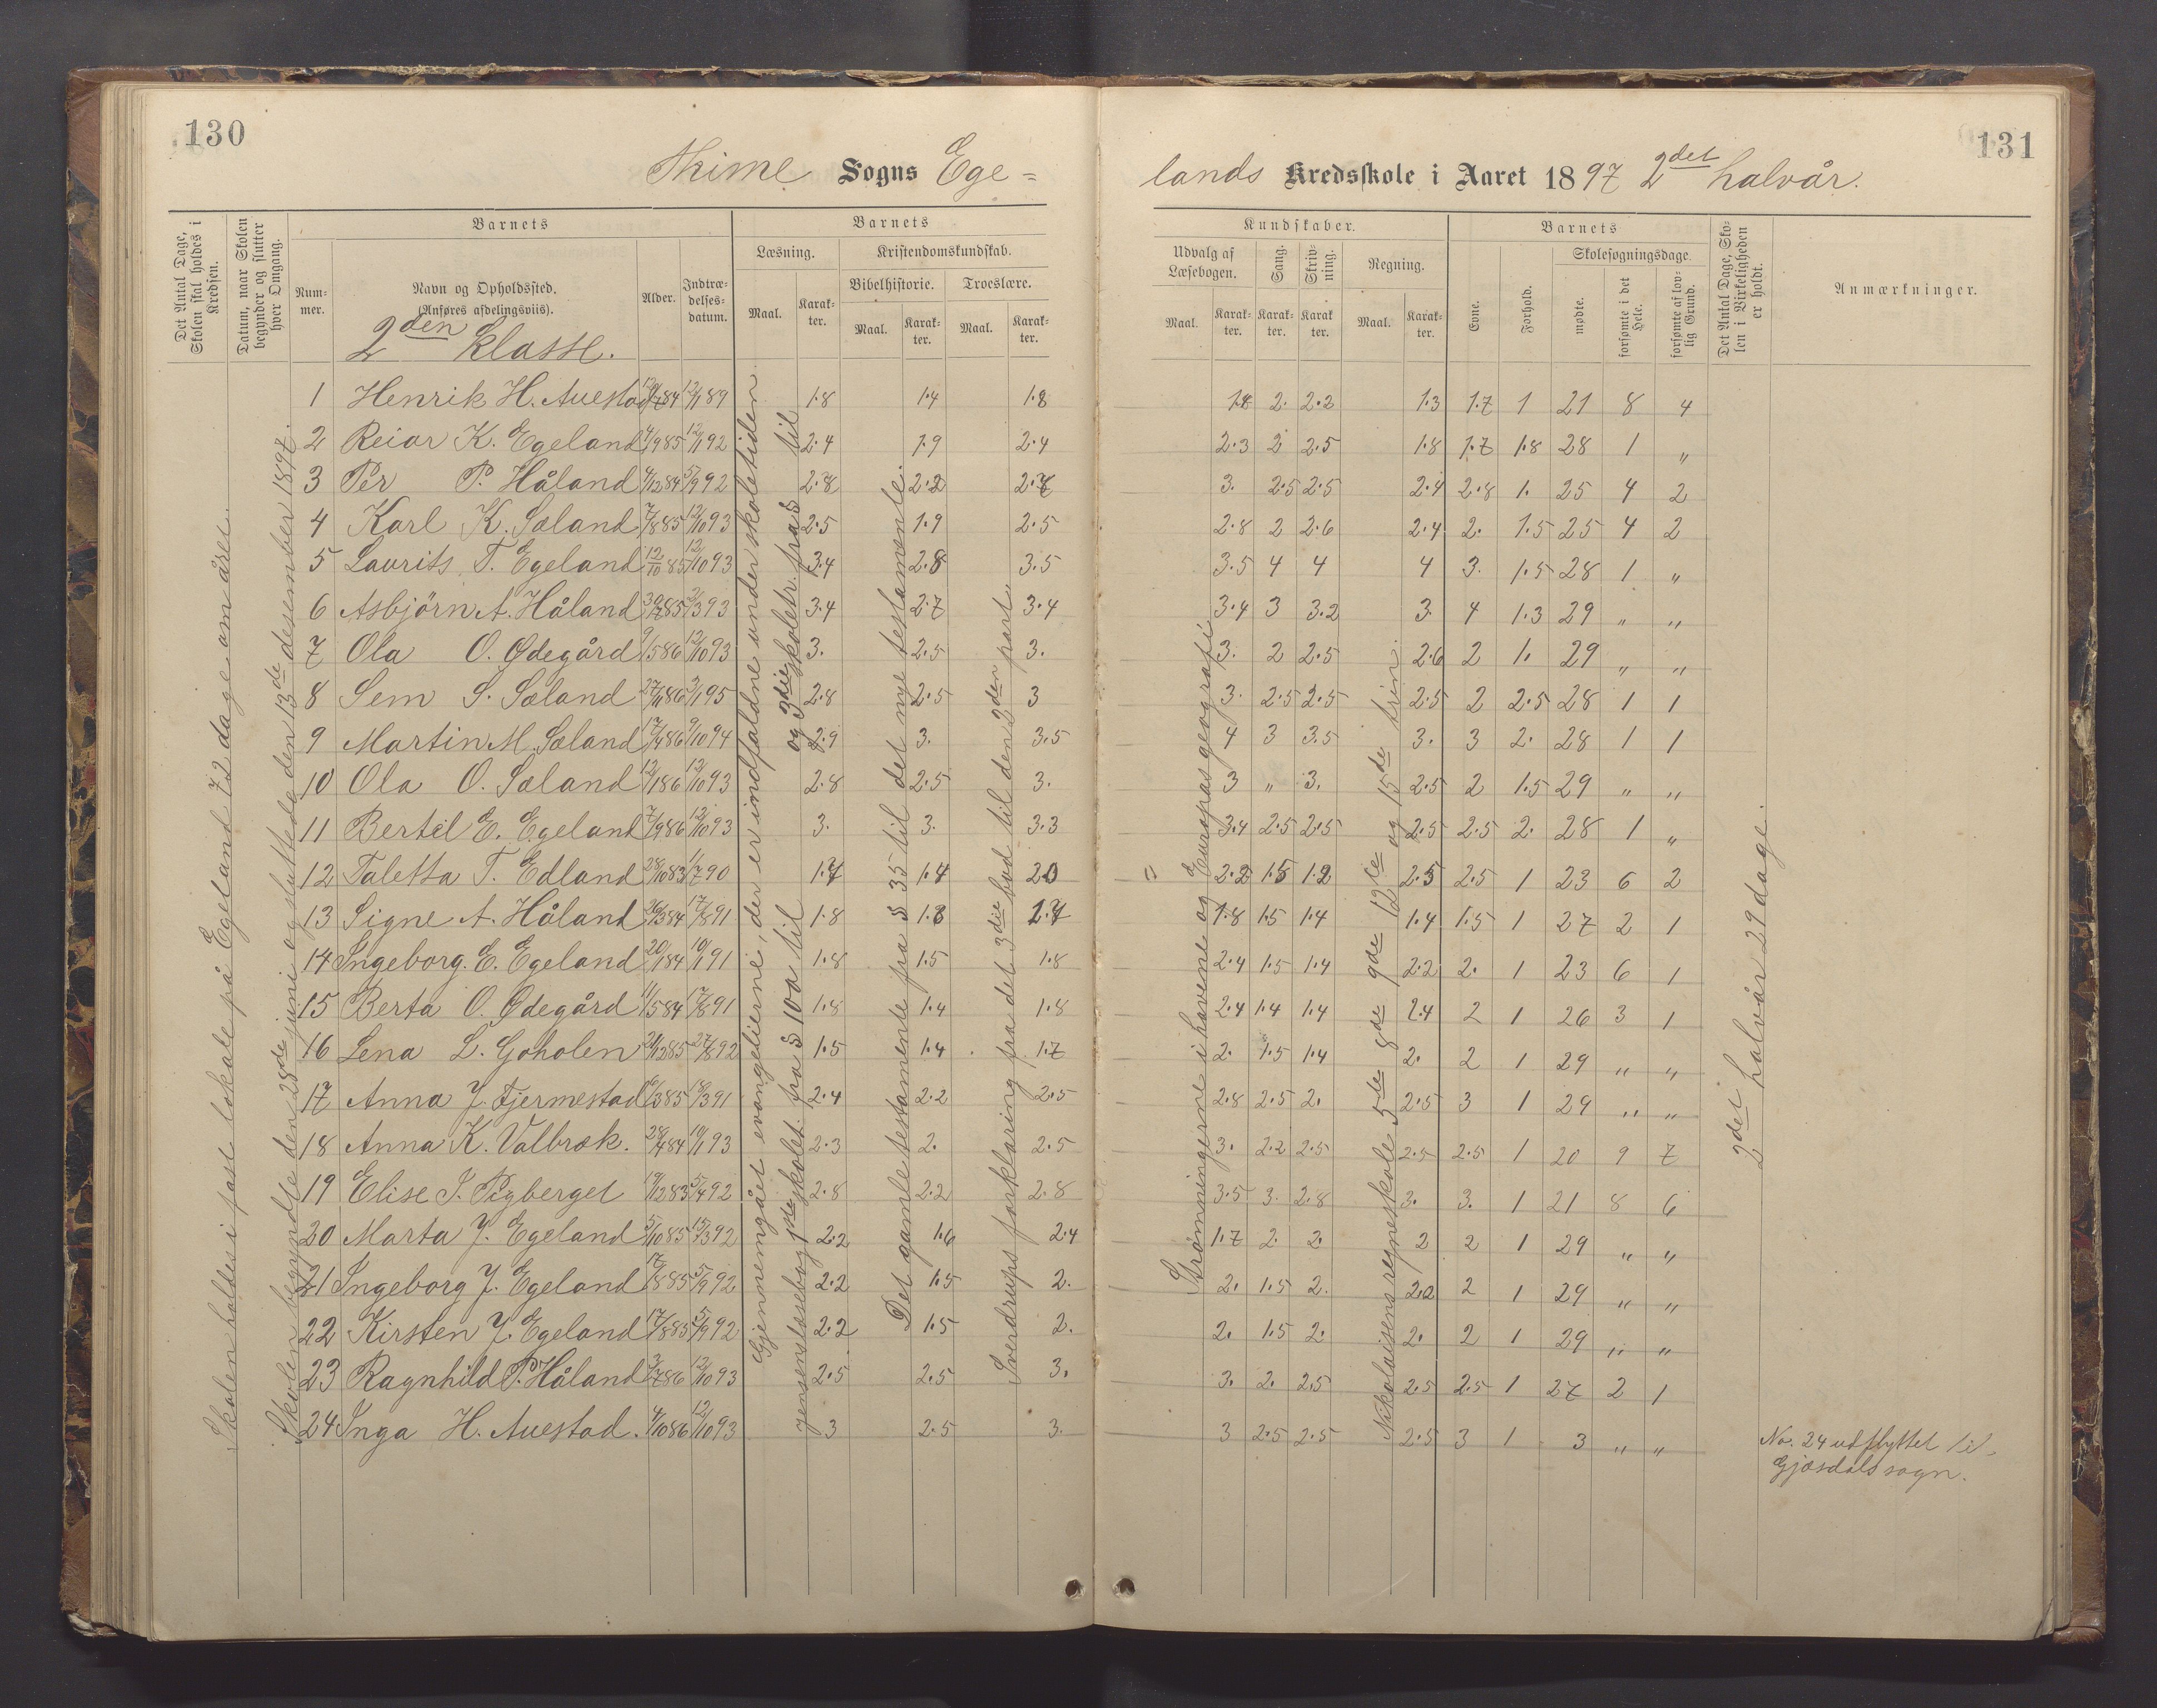 130
131
Thime Sogns Ege=
lands Kredsskole i Aaret 1897 2det halvår.
Det Antal Dage, Skolen skal holdes i Kredsen.
Datum, naar Skolen begynder og slutter hver Omgang.
Barnets
Num-
mer.
Navn og Opholdssted.
(Anføres afdelingsviis).
Alder.
Indtræ-
delses-
datum.
Barnets
Læsning.
Kristendomskundskab.
Bibelhistorie. Troeslære.
Maal. Karak-
ter.
Maal. Karak-
ter.
Maal. Karak-
ter.
Kundskaber.
Udvalg af
Læsebogen.
Sang.
Skriv-
ning.
Regning.
Maal. Karak-
ter.
Karak-
ter.
Karak-
ter.
Maal. Karak-
ter.
Barnets
Evne.
Forhold.
Skolesøgningsdage.
mødte.
forsømte i det Hele.
forsømte af lov-
lig Grund.
Det Antal Dage, Sko-
len i Virkeligheden
er holdt.
Anmærkninger.
2den klasse.
1 Henrik H. Auestad 84 12/1 89 1.8 1.4 1.8 1.8 2. 2.2 1.3 1.7 1 21 8 4
2 Reiar K. Egeland 4/9 85 12/1 92 2.4 1.9 2.4 2.3 2 2.5 1.8 1.7 1.8 28 1 "
3 Per P. Håland 4/12 84 5/9 92 2.8 2.2 2.7 3. 2.5 2.5 2.4 2.8 1. 25 4 2
4 Karl K. Sæland 7/8 85 12/10 93 2.5 1.9 2.5 2.8 2 2.6 2.4 2. 1.5 25 4 2
5 Laurits T. Egeland 12/10 85 12/10 93 3.4 2.8 3.5 3.5 4 4 4 3. 1.5 28 1 "
6 Asbjörn A. Håland 30/7 85 3/3 93 3.4 2.7 3.4 3.4 3 3.2 3. 4 1.3 29 " "
7 Ola O. Ødegård 9/5 86 12/10 93 3. 2.5 3. 3. 2 2.5 2.6 2 1. 29 " "
8 Sem S. Sæland 27/11 86 3/1 95 2.8 2.5 3 3. 2.5 2.5 2.5 2 2.5 28 1 1
9 Martin M. Sæland 17/4 86 9/10 94 2.9 3. 3.5 4 3 3.5 3. 3 2. 28 1 1
10 Ola O. Sæland 12/1 86 12/10 93 2.8 2.5 3. 3 " 3. 2.5 2 1.5 29 " "
11 Bertel E. Egeland 7/9 86 12/10 93 3. 3. 3.3 3.4 2.5 2.5 2.5 2.5 2. 28 1 "
12 Taletta T. Edland 28/10 83 1/7 90 1.7 1.4 2.0 2.2 1.5 1.2 2.5 2.5 1 23 6 2
13 Signe A. Håland 26/3 84 17/8 91 1.8 1.3 1.7 1.8 1.5 1.4 1.4 1.5 1 27 2 1
14 Ingeborg. E. Egeland 20/1 84 10/1 91 1.8 1.5 1.8 2.4 1.5 1.4 2.2 2. 1 23 6 1
15 Berta O. Ødegård 11/5 84 17/8 91 1.8 1.4 1.8 2.4 1.4 1.4 2.4 2 1 26 3 1
16 Lena L. Goholen 21/12 85 27/8 92 1.5 1.4 1.7 2. 1.5 1.4 2. 2 1 29 " "
17 Anna J. Fjermestad 6/3 85 18/3 91 2.4 2.2 2.5 2.8 2.5 2. 2.5 3 1 29 " "
18 Anna K. Valbræk. 28/4 84 10/1 93 2.3 2. 2.5 3. 2.2 2.5 2.5 2.5 1 20 9 7
19 Elise J. Pigberget 19/12 83 5/4 92 2.8 2.2 2.8 3.5 3. 2.8 3. 3. 1 21 8 6
20 Marta J. Egeland 5/10 85 15/3 92 2.2 1.6 2.4 1.7 2. 2. 2 2 1 29 " "
21 Ingeborg J. Egeland 17/8 85 5/9 92 2.2 1.5 2. 2. 1.5 2. 2.2 2 1 29 " "
22 Kirsten J. Egeland 17/8 85 5/9 92 2.2 1.5 2. 2. 1.5 2. 2. 2 1 29 " "
23 Ragnhild P. Håland 3/7 86 12/10 93 2.5 2.5 3. 3. 2. 2.5 2.5 2.5 1 27 2 1
24 Inga H. Auestad. 4/10 86 12/10 93 3 2.5 3. 3 2.5 2.5 2.5 3 1 3 " "
Skolen holdes i fast lokale på Egeland 72 dage om året.
Skolen begyndte den 28de juni og sluttede den 13de desember 1897.
Gjennemgået evangelierne, der er indfaldne under skoletiden
Jensens læsebog 1ste skolet. fra § 100 til og 3die skoletr. fra § til
Det gamle testamente fra § 35 til det nye testamente.
Sverdrups forklaring fra det 3die bud til den 2den part.
Strømningerne i havene og Europas geografi.
Nikolaisens regneskole 5te 8de 9de 12te og 15de trin.
2det halvår 29 dage.
No. 24 udflyttet til
Gjæsdals sogn.